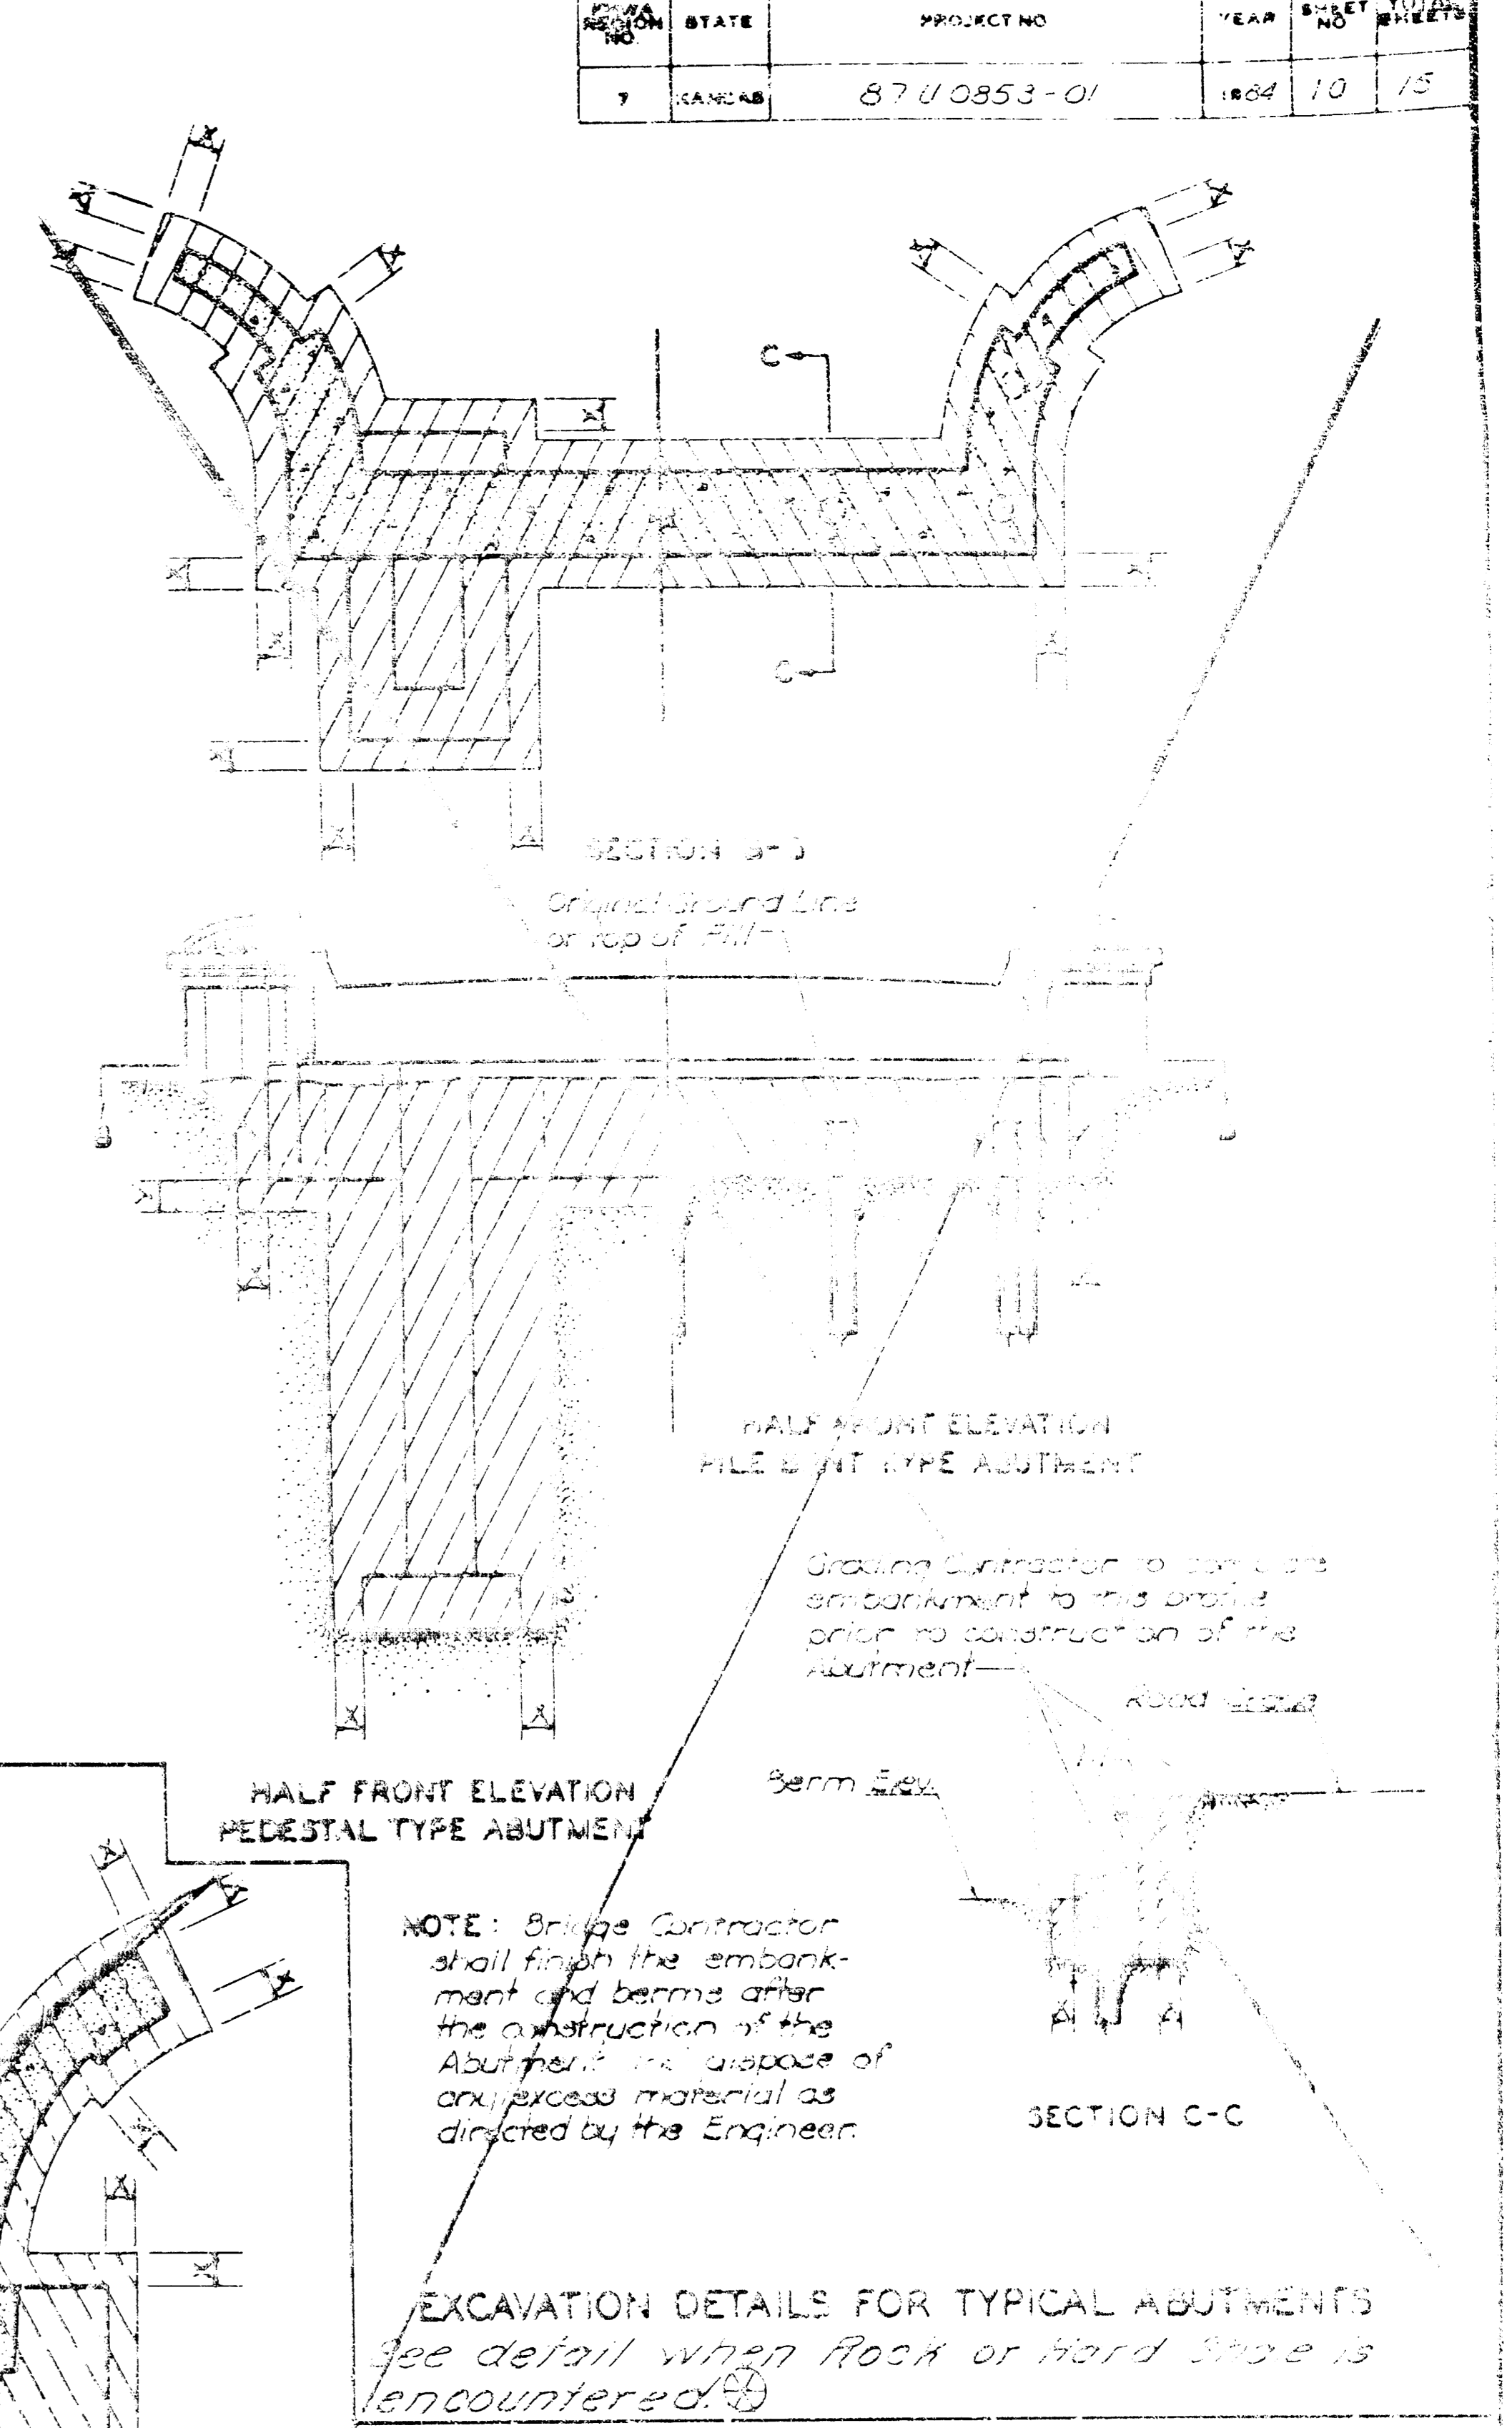 REGION STATE PROJECT NO YEAR SHEET NO TOTAL SHEETS
NO.
7 KANSAS 87 U 0853-01 1984 10 15
C
C
SECTION
Original Ground Line
or Top of Fill
B
HALF FRONT ELEVATION
PILE BENT TYPE ABUTMENT
Grading Contractor to
embankment to this profile
prior to construction of the
Abutment
Road
Berm Elev.
HALF FRONT ELEVATION
PEDESTAL TYPE ABUTMENT
NOTE: Bridge Contractor
shall finish the embank-
ment and berms after
the construction of the
Abutment and dispose of
any excess material as
directed by the Engineer.
SECTION C-C
EXCAVATION DETAILS FOR TYPICAL ABUTMENTS
See detail when Rock or Hard Shale is
encountered.